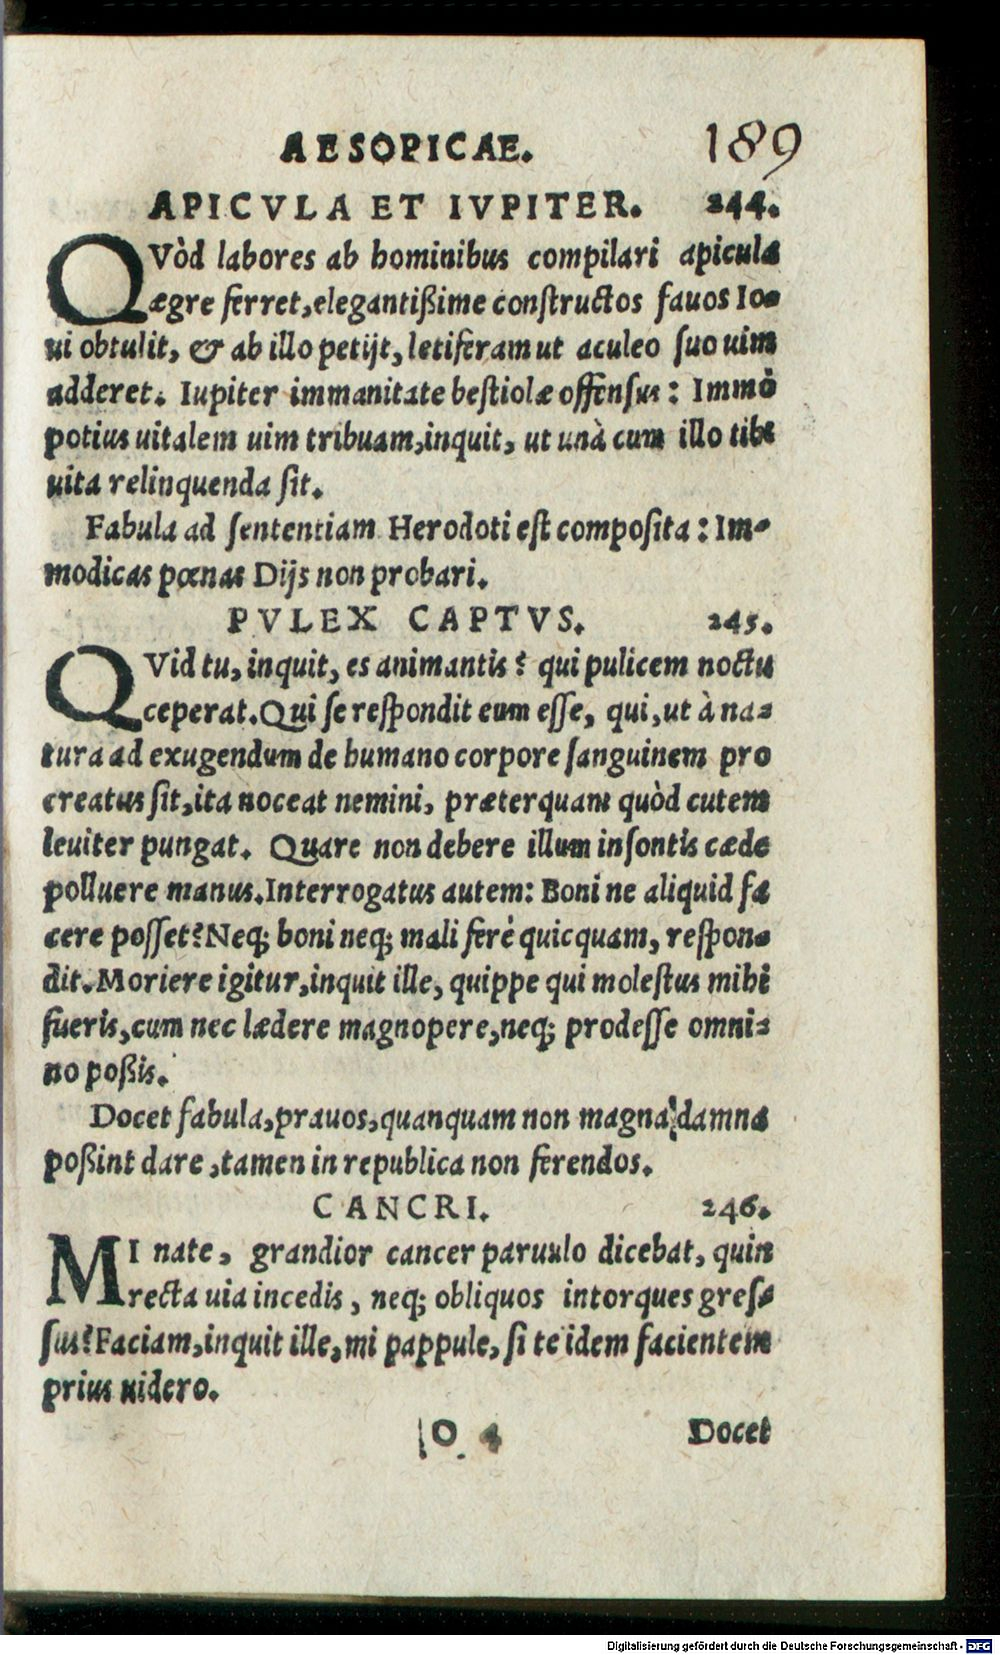 AESOPICAE. 189
APICVLA ET IVPITER. 244.
QVòd labores ab hominibus compilari apicula
ægre ferret, elegantißime constructos fauos Io-
ui obtulit, & ab illo petijt, letiferam ut aculeo suo uim
adderet. Iupiter immanitate bestiolæ offensus: Immò
potius uitalem uim tribuam, inquit, ut unà cum illo tibi
uita relinquenda sit.
Fabula ad sententiam Herodoti est composita: Im-
modicas pœnas Dijs non probari.
PVLEX CAPTVS. 245.
QVid tu, inquit, es animantis? qui pulicem noctu
ceperat. Qui se respondit eum esse, qui, ut à na-
tura ad exugendum de humano corpore sanguinem pro
creatus sit, ita noceat nemini, præterquam quòd cutem
leuiter pungat. Quare non debere illum insontis cæde
polluere manus. Interrogatus autem: Boni ne aliquid fa
cere posset? Neq; boni neq; mali ferè quicquam, respon-
dit. Moriere igitur, inquit ille, quippe qui molestus mihi
fueris, cum nec lædere magnopere, neq; prodesse omni-
no poßis.
Docet fabula, prauos, quanquam non magna damna
poßint dare, tamen in republica non ferendos.
CANCRI. 246.
MI nate, grandior cancer paruulo dicebat, quin
recta uia incedis, neq; obliquos intorques gres-
sus? Faciam, inquit ille, mi pappule, si te idem facientem
prius uidero.
O 4 Docet
Digitalisierung gefördert durch die Deutsche Forschungsgemeinschaft - DFG